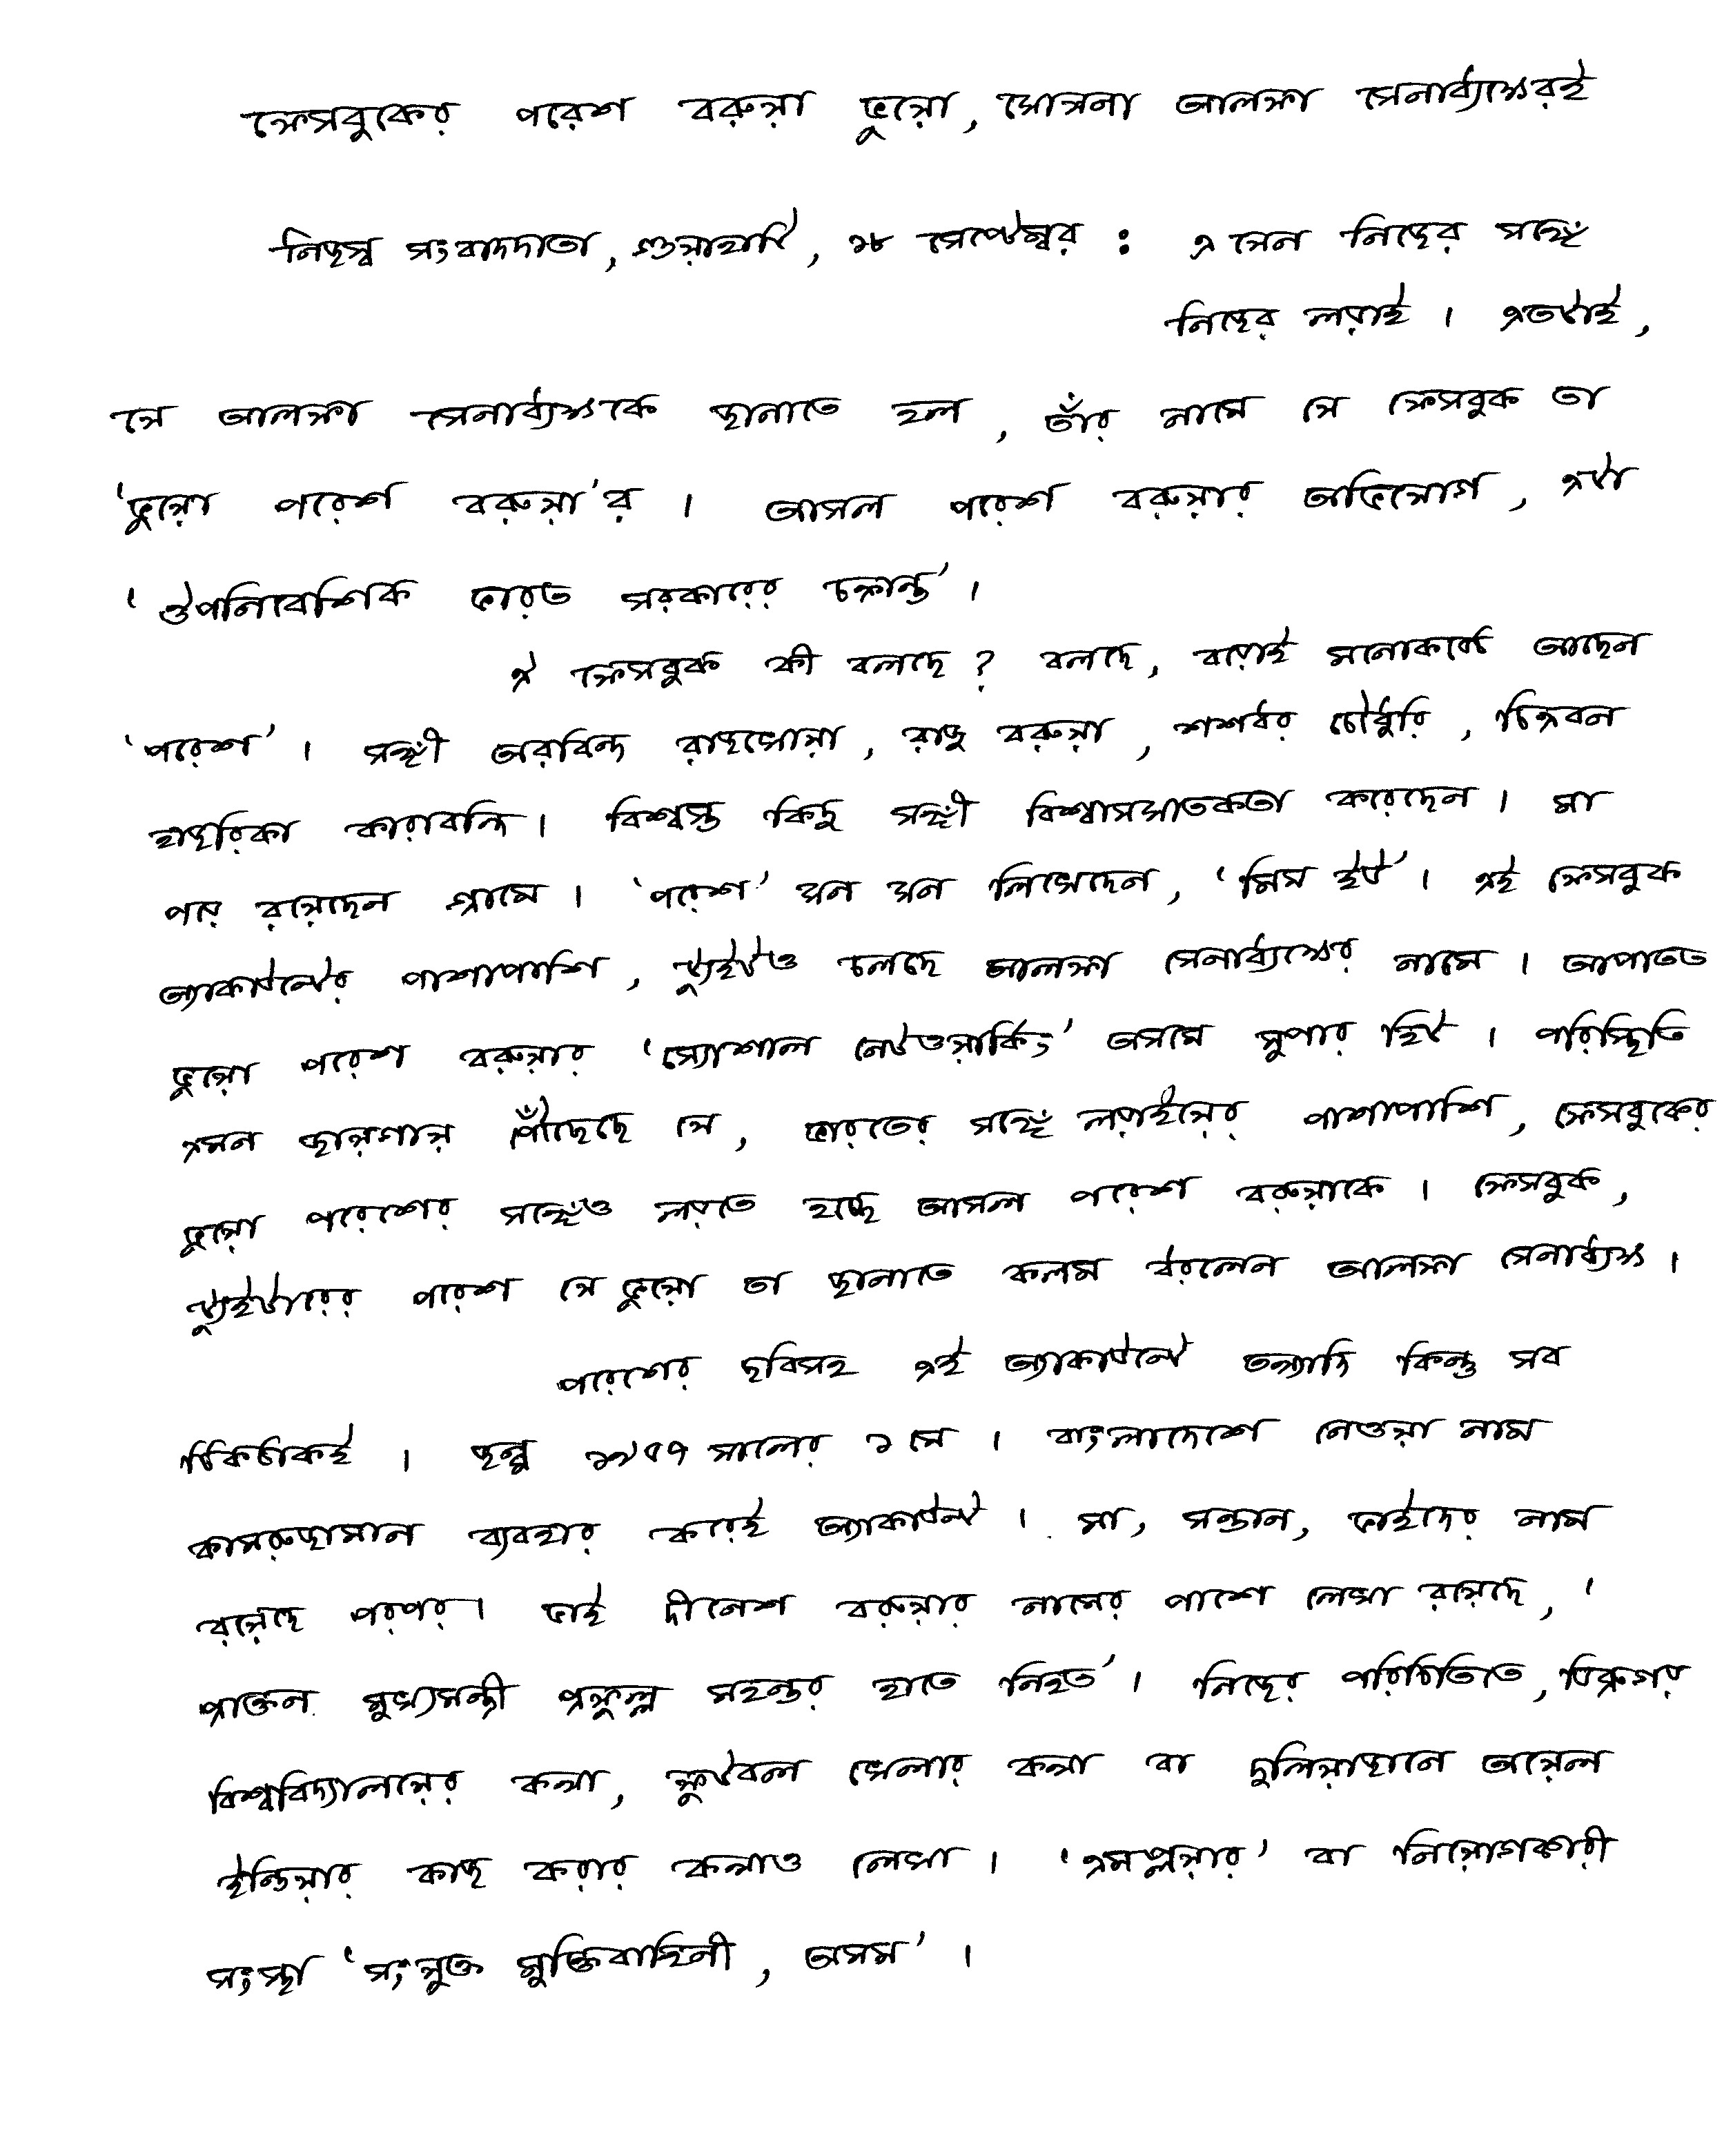 ফেসবুকের পরেশ বরুয়া ভুয়ো, ঘোষণা আলফা সেনাধ্যক্ষেরই
নিজস্ব সংবাদদাতা, গুয়াহাটি, ১৮ সেপ্টেম্বর : এ যেন নিজের সঙ্গে
নিজের লড়াই । এতটাই,
যে আলফা সেনাধ্যক্ষকে জানাতে হল, তাঁর নামে যে ফেসবুক তা
‘ভুয়ো পরেশ বরুয়া’র । আসল পরেশ বরুয়ার অভিযোগ, এটা
‘ঔপনিবেশিক ভারত সরকারের চক্রান্ত’ ।
ঐ ফেসবুক কী বলছে ? বলছে, বড়োই মনোকষ্টে আছেন
‘পরেশ’ । সঙ্গী অরবিন্দ রাজখোয়া, রাজু বরুয়া, শশধর চৌধুরি, চিত্রবন
হাজরিকা কারাবন্দি । বিশ্বস্ত কিছু সঙ্গী বিশ্বাসঘাতকতা করেছেন । মা
পড়ে রয়েছেন গ্রামে । ‘পরেশ’ ঘন ঘন লিখেছেন, ‘মিস ইউ’ । এই ফেসবুক
অ্যাকাউন্টের পাশাপাশি, ট্যুইটও চলছে আলফা সেনাধ্যক্ষের নামে । আপাতত
ভুয়ো পরেশ বরুয়ার ‘স্যোশাল নেটওয়ার্কিং’ অসমে সুপার হিট । পরিস্থিতি
এমন জায়গায় পৌঁছেছে যে, ভারতের সঙ্গে লড়াইয়ের পাশাপাশি, ফেসবুকের
ভুয়ো পরেশের সঙ্গেও লড়তে হচ্ছে আসল পরেশ বরুয়াকে । ফেসবুক,
ট্যুইটারের পরেশ যে ভুয়ো তা জানাতে কলম ধরলেন আলফা সেনাধ্যক্ষ ।
পরেশের ছবিসহ এই অ্যাকাউন্টে তথ্যাদি কিন্তু সব
ঠিকঠাকই । জন্ম ১৯৫৭ সালের ১ মে । বাংলাদেশে নেওয়া নাম
কামরুজামান ব্যবহার করেই অ্যাকাউন্ট । মা, সন্তান, ভাইদের নাম
রয়েছে পরপর । ভাই দীনেশ বরুয়ার নামের পাশে লেখা রয়েছে, ‘
প্রাক্তন মুখ্যমন্ত্রী প্রফুল্ল মহন্তর হাতে নিহত’ । নিজের পরিচিতিতে, ডিব্রুগড়
বিশ্ববিদ্যালয়ের কথা, ফুটবল খেলার কথা বা দুলিয়াজানে অয়েল
ইন্ডিয়ার কাজ করার কথাও লেখা । ‘এমপ্লয়ার’ বা নিয়োগকারী
সংস্থা ‘সংযুক্ত মুক্তিবাহিনী, অসম’ ।